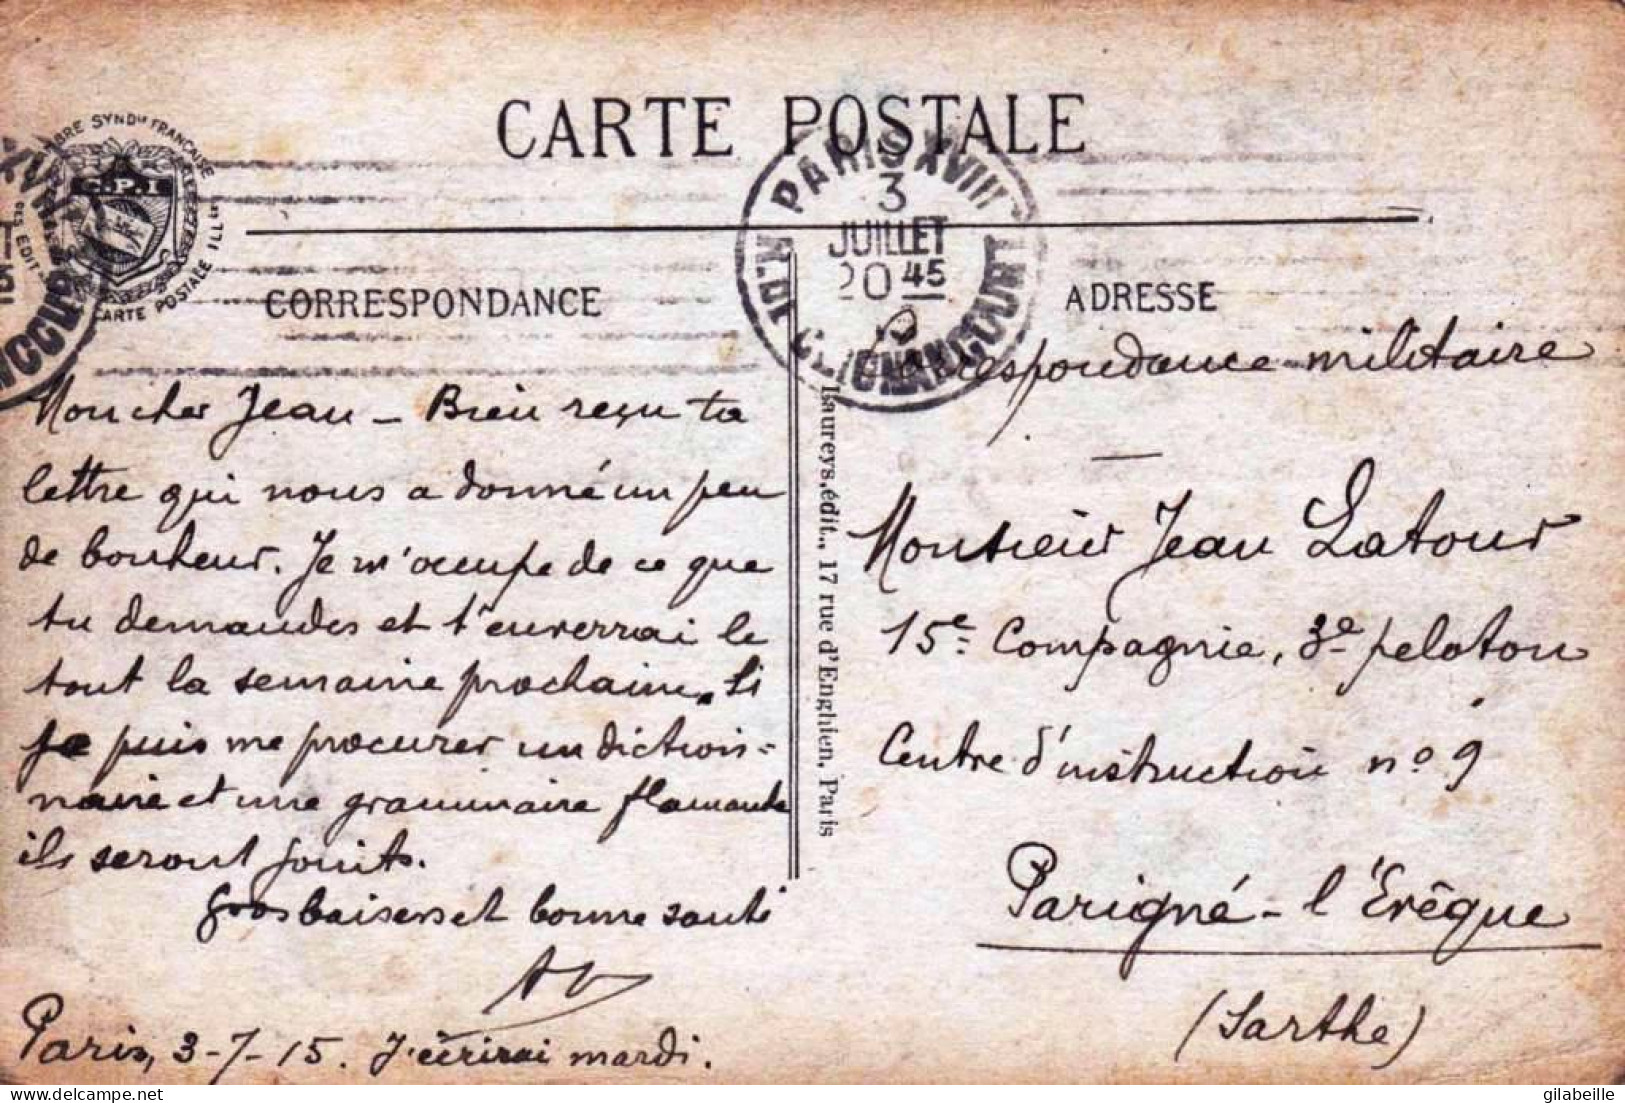 CARTE POSTALE
TIMBRE SYND.le FRANÇAISE
C.P.I
CARTE POSTALE ILL.ée
DES EDIT.
PARIS XVIII
3
JUILLET
20 45
R. DE CLIGNANCOURT
CORRESPONDANCE
ADRESSE
Correspondance militaire
Mon cher Jean – Bien reçu ta
lettre qui nous a donné un peu
de bonheur. Je m'occupe de ce que
tu demandes et t'enverrai le
tout la semaine prochaine. Si
je puis me procurer un diction=
naire et une grammaire flamande
ils seront joints.
Gros baisers et bonne santé
Paris, 3-7-15. J'écrirai mardi.
Laureys, édit., 17 rue d'Enghien, Paris
Monsieur Jean Latour
15e Compagnie, 3e peloton
Centre d'instruction no 9
Parigné-l'Evêque
(Sarthe)
gilabeille